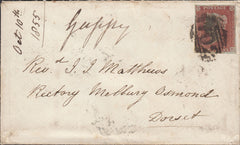 Oct 10th
1855
Guppy
Revd. J. J. Matthews
Rectory Melbury Osmond
Dorset